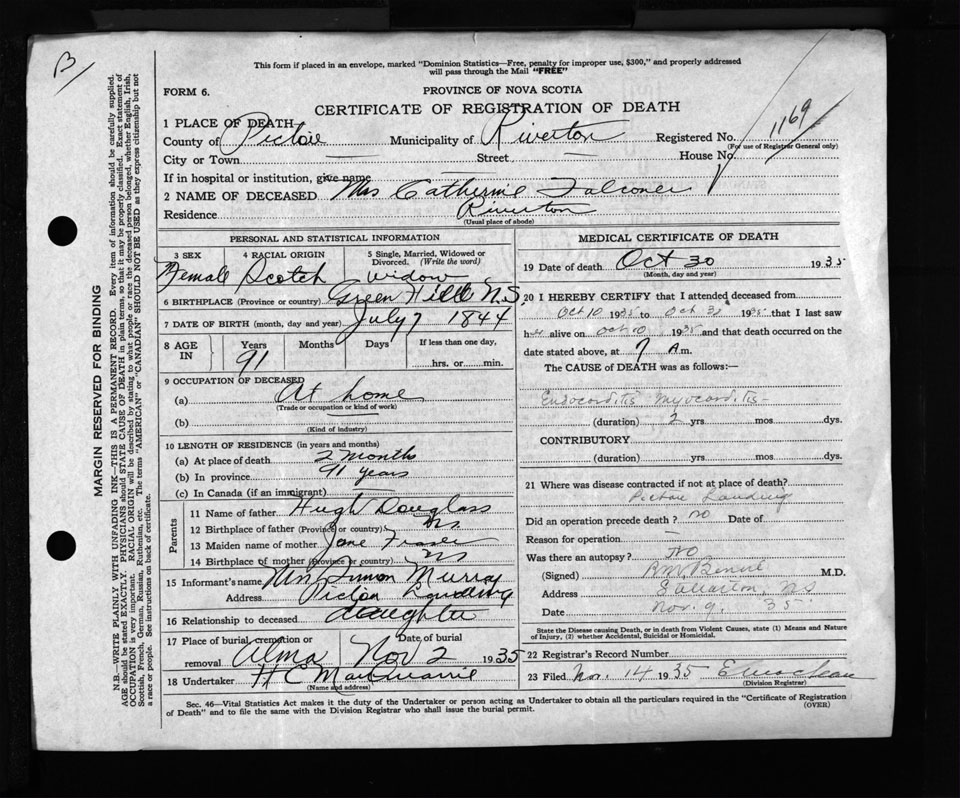 B
This form if placed in an envelope, marked "Dominion Statistics—Free, penalty for improper use, $300," and properly addressed
will pass through the Mail "FREE"
FORM 6.
PROVINCE OF NOVA SCOTIA
CERTIFICATE OF REGISTRATION OF DEATH
1 PLACE OF DEATH
County of Pictou Municipality of Riverton Registered No. 1169
(For use of Registrar General only)
City or Town — Street — House No.
If in hospital or institution, give name
2 NAME OF DECEASED Mrs Catherine Falconer
Residence Riverton
(Usual place of abode)
PERSONAL AND STATISTICAL INFORMATION
3 SEX 4 RACIAL ORIGIN 5 Single, Married, Widowed or Divorced. (Write the word)
Female Scotch Widow
6 BIRTHPLACE (Province or country) Green Hill N.S.
7 DATE OF BIRTH (month, day and year) July 7 1844
8 AGE IN Years Months Days If less than one day,
91 hrs. or min.
9 OCCUPATION OF DECEASED
(a) At home
(Trade or occupation or kind of work)
(b)
(Kind of industry)
10 LENGTH OF RESIDENCE (in years and months)
(a) At place of death 2 months
(b) In province 91 years
(c) In Canada (if an immigrant)
Parents
11 Name of father Hugh Douglass
12 Birthplace of father (Province or country) NS
13 Maiden name of mother Jane Fraser
14 Birthplace of mother (Province or country) NS
15 Informant's name Mrs Simon Murray
Address Pictou Landing
16 Relationship to deceased daughter
17 Place of burial, cremation or removal Alma Date of burial Nov 2 1935
18 Undertaker H C MacQuarrie
(Name and address)
MEDICAL CERTIFICATE OF DEATH
19 Date of death Oct 30 1935
(Month, day and year)
20 I HEREBY CERTIFY that I attended deceased from
Oct 10 1935 to Oct 30 1935 that I last saw
her alive on Oct 10 1935 and that death occurred on the
date stated above, at 7 A m.
The CAUSE of DEATH was as follows:—
Endocarditis Myocarditis
(duration) 2 yrs mos dys.
CONTRIBUTORY
(duration) yrs mos dys.
21 Where was disease contracted if not at place of death?
Pictou Landing
Did an operation precede death? no Date of
Reason for operation —
Was there an autopsy? No
(Signed) M.D.
Address Stellarton, N S
Date Nov. 9. 35
State the Disease causing Death, or in death from Violent Causes, state (1) Means and Nature
of Injury, (2) whether Accidental, Suicidal or Homicidal.
22 Registrar's Record Number
23 Filed Nov. 14 1935
(Division Registrar)
Sec. 46—Vital Statistics Act makes it the duty of the Undertaker or person acting as Undertaker to obtain all the particulars required in the "Certificate of Registration
of Death" and to file the same with the Division Registrar who shall issue the burial permit. (OVER)
MARGIN RESERVED FOR BINDING
N.B.—WRITE PLAINLY WITH UNFADING INK—THIS IS A PERMANENT RECORD. Every item of information should be carefully supplied.
AGE should be stated EXACTLY. PHYSICIANS should STATE CAUSE OF DEATH in plain terms, so that it may be properly classified. Exact statement of
OCCUPATION is very important. RACIAL ORIGIN will be described by stating to what people or race the deceased person belonged, whether English, Irish,
Scottish, French, German, Russian, Ruthenian, etc. The terms "AMERICAN" or "CANADIAN" SHOULD NOT BE USED as they express citizenship but not
a race or people. See instructions on back of certificate.